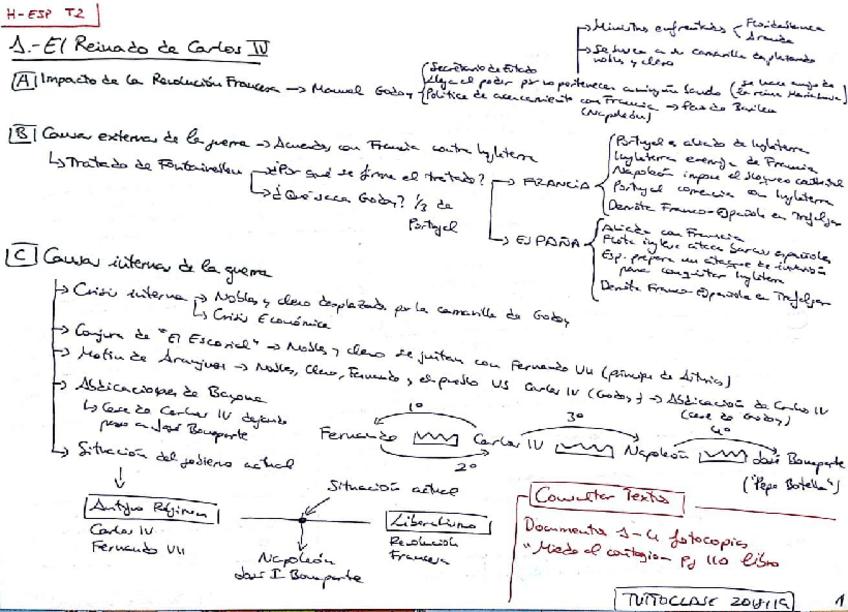 H-ESP T2
1.- El Reinado de Carlos IV
→ Ministros enfrentados < Floridablanca
Aranda
→ Se busca a su camarilla desplazando
nobles y clero
A Impacto de la Revolución Francesa → Manuel Godoy
Secretario de Estado
Llega al poder por no pertenecer a ningún bando (se hace amigo de
la reina María Luisa)
Política de acercamiento con Francia → Paz de Basilea
(Napoleón)
B Causas externas de la guerra → Acuerdos con Francia contra Inglaterra
↳ Tratado de Fontainebleau → ¿Por qué se firma el tratado?
→ ¿Qué saca Godoy? 1/3 de
Portugal
→ FRANCIA
Portugal aliado de Inglaterra
Inglaterra enemiga de Francia
Napoleón impone el bloqueo continental
Portugal comercia con Inglaterra
Derrota Franco-Española en Trafalgar
→ ESPAÑA
Aliado con Francia
Flota inglesa ataca barcos españoles
Esp. prepara un ataque de invasión
para conquistar Inglaterra
Derrota Franco-Española en Trafalgar
C Causas internas de la guerra
→ Crisis interna → Nobles y clero desplazados por la camarilla de Godoy
↳ Crisis Económica
→ Conjura de "El Escorial" → Nobles y clero se juntan con Fernando VII (príncipe de Asturias)
→ Motín de Aranjuez → Nobles, Clero, Fernando y el pueblo VS Carlos IV (Godoy) → Abdicación de Carlos IV
(cese de Godoy)
→ Abdicaciones de Bayona
↳ Cese de Carlos IV dejando
paso a José Bonaparte
1º 3º 4º
Fernando Carlos IV Napoleón José Bonaparte
2º
("Pepe Botella")
→ Situación del gobierno actual
Situación actual
Antiguo Régimen
Carlos IV
Fernando VII
Napoleón
José I Bonaparte
Liberalismo
Revolución
Francesa
Consultar Textos
Documentos 1-4 fotocopias
"Miedo al contagio" Pg 110 libro
TUTTOCLASE 2018/19
1